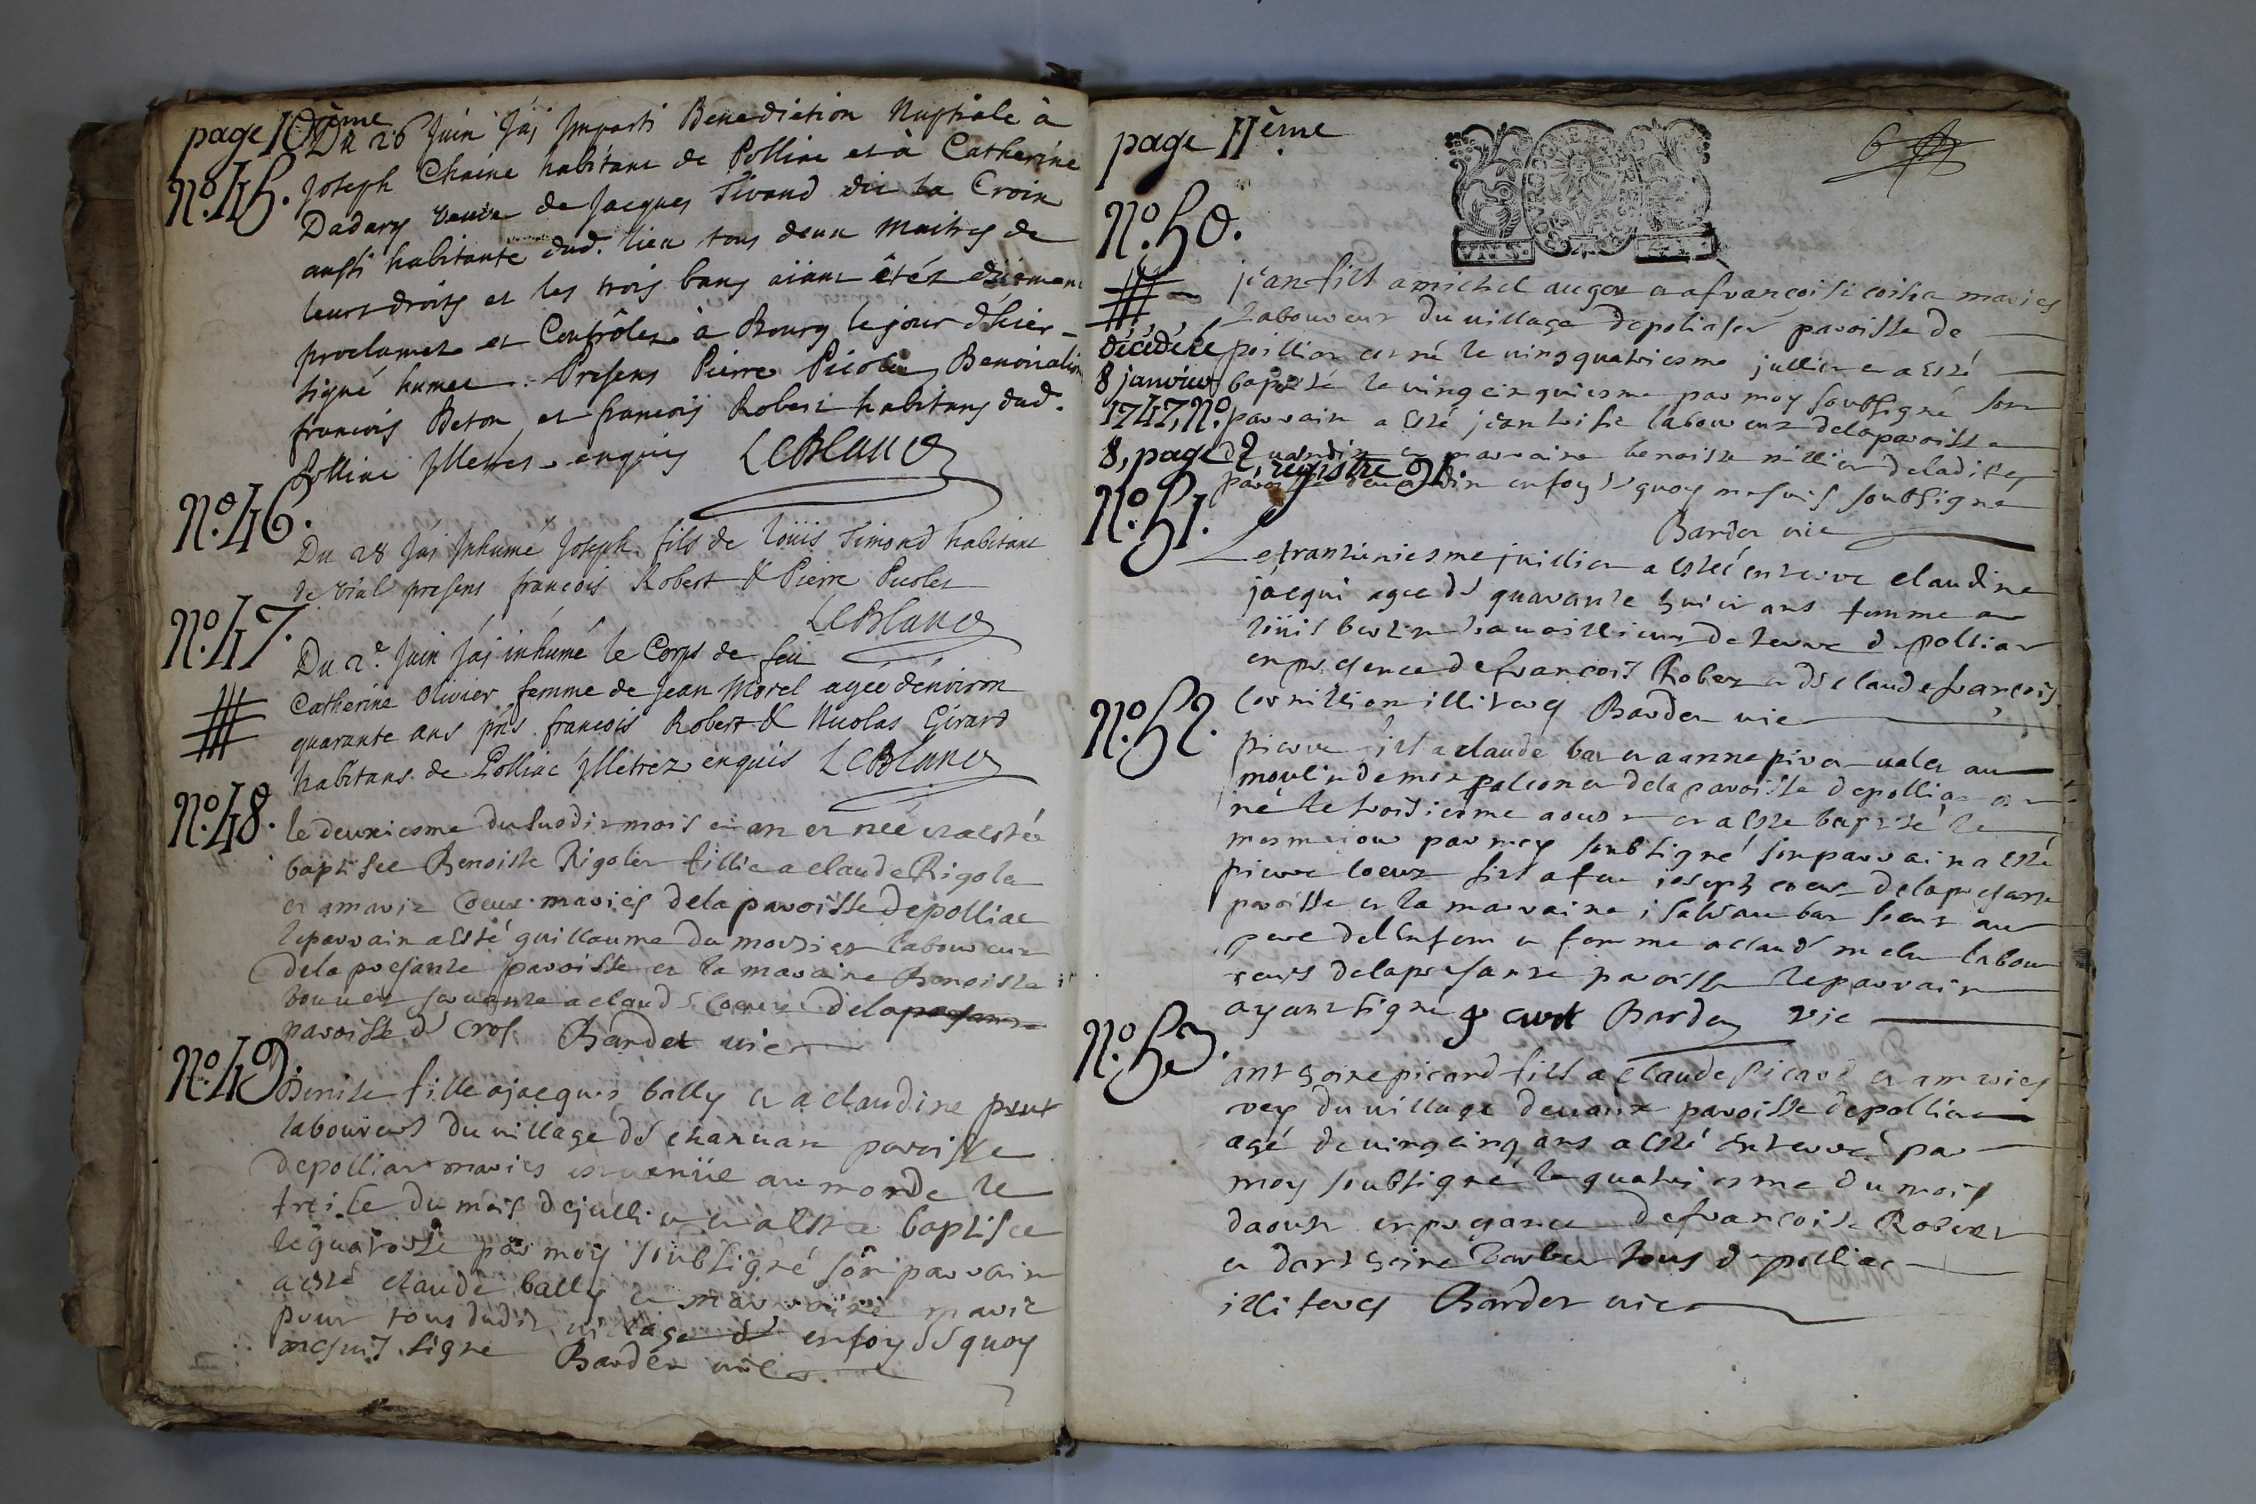 page 10ème
Du 26 Juin J'aj Imparti Benediction Nuptiale à
No. 45. Joseph Chaine habitant de Polliac et à Catherine
Dadarg veuve de Jacques Tivand dit la Croix
aussi habitante dud. lieu tous deux Maitres de
leurs droits et les trois bans aiant étéz düement
proclamez et Contrôlez à Bourg le jour d'hier
signé humer. Presens Pierre Picolet Benonialin
francois Beton et francois Robert habitans dud.
Polliac Illetrés enquis LeBlanc
No. 46.
Du 28 J'aj Inhumé Joseph fils de Loüis Timond habitant
de Vial presens francois Robert & Pierre Picolet
LeBlanc
No. 47.
Du 2e. Juin J'aj inhumé le Corps de feu
Catherine Olivier femme de Jean Morel agée d'environ
quarante ans pns. francois Robert & Nicolas Girard
habitans de Polliac Illétrez enquis LeBlanc
No. 48. le deuxiesme du susdit mois et an et née et a estée
baptisee Benoiste Rigolet fillie a claude Rigolet
et a marie Coeur maries de la paroisse de polliac
le parrain a esté guillaume du mortier laboureur
de la presante paroisse et la maraine Benoiste
bouvet servante a claude Coeur de la presante
paroisse de Cros Bardet vic
No. 49. Denise fille a jacques bally et a claudine
laboureurs du village de chanvan paroisse
de polliat maries est venüe au monde le
treise du mois de jullier et a estee baptisee
le quatorse par moy soubsigné son parrain
a esté claude bally et marraine marie
tous dudit village en foy de quoy
me suis signe Bardet vic
page 11ème
6
No. 50.
jean fils a michel auger et a francoise maries
laboureur du village de poliaser paroisse de
décédé le polliat est né le vingquatriesme jullier et a esté
8 janvier baptisé le vingcinquiesme par moy soubsigné son
1747, No. parrain a esté jean laboureur de la paroisse
8, page 2, et marraine benoiste millier de ladite
registre 91. paroisse en foy de quoy me suis soubsigné
Bardet vic
No. 51.
Le trantuniesme juillier a estéé enterre claudine
jacqui agee de quarante huit ans femme a
loüis bertin travaillieur de terre de polliat
en presence de francois Robert et de claude francois
Cornillion illiteres Bardet vic
No. 52.
pierre fils a claude bar et a anne piver valet au
moulin de mon de la paroisse de polliac est
né le troisiesme aoust et a esté baptisé le
mesme jour par moy soubsigné son parrain a esté
pierre coeur fils a feu joseph coeur de la presante
paroisse et la marraine isabeau bar soeur au
pere de l'enfant et femme a claude melu labou
reurs de la presante paroisse le parrain
ayant signé Bardet vic
No. 53.
anthoine picard fils a claude picard et a marie
rey du village de vaux paroisse de polliac
agé de vingcinq ans a esté enterré par
moy soubsigné le quatriesme du mois
daoust en presance de francoise Robert
et danthoine barbet tous de polliac
illiteres Bardet vic